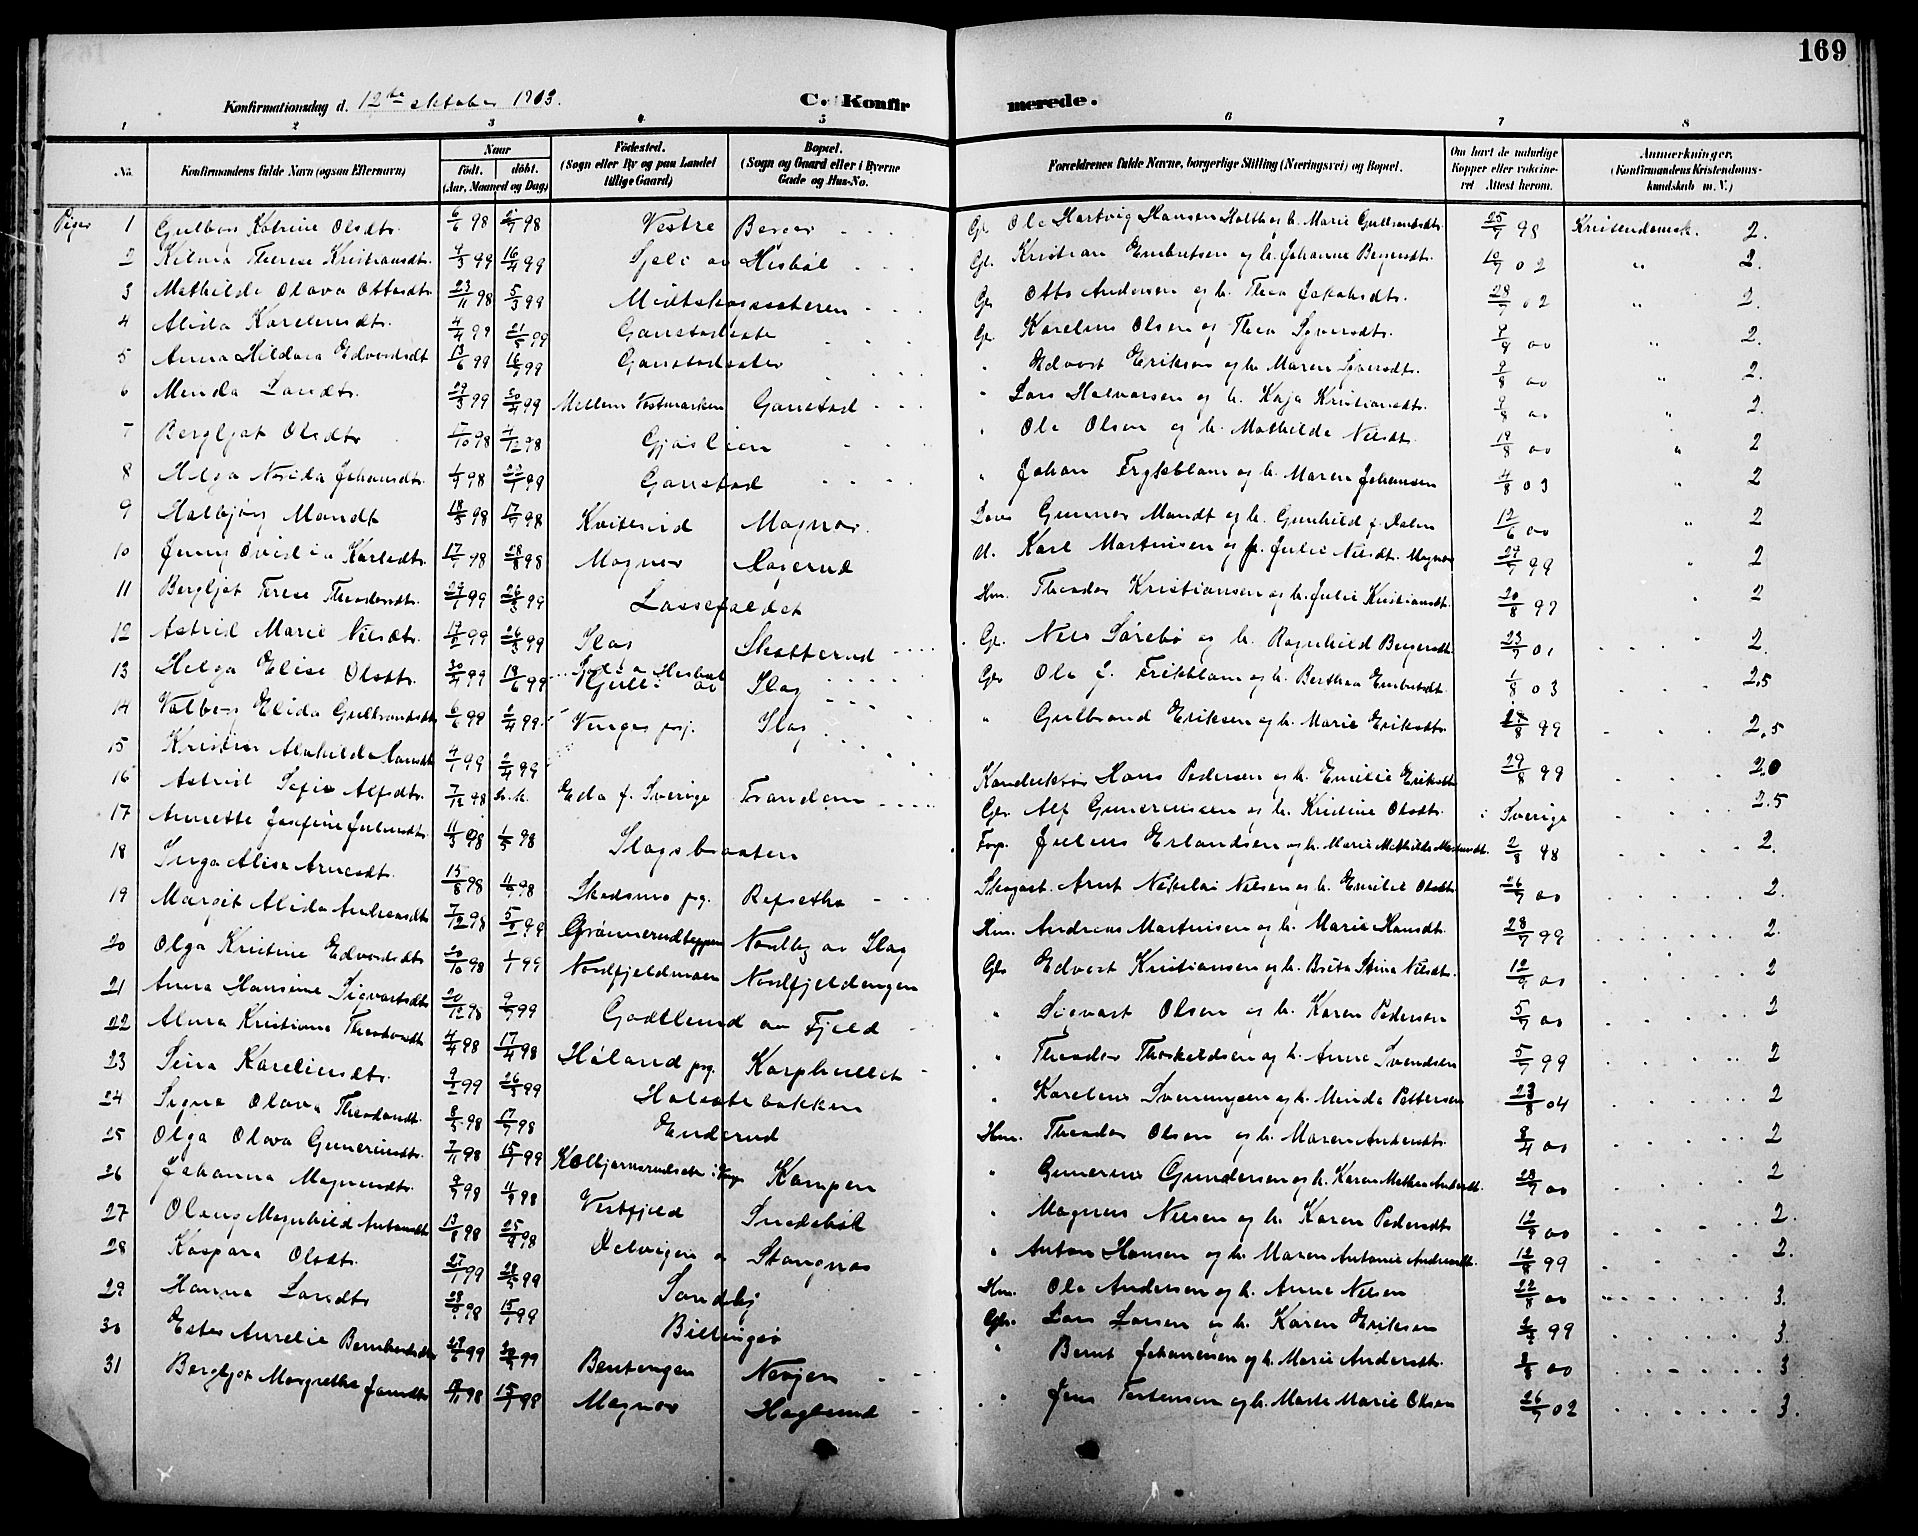 169
Konfirmationsdag d. 12te oktober 1903. C. Konfirmerede.
1 2 3 4 5 6 7 8
No. Konfirmandens fulde Navn (ogsaa Efternavn) Naar født. døbt. (Aar, Maaned og Dag) Fødested. (Sogn eller By og paa Landet tillige Gaard) Bopæl. (Sogn og Gaard eller i Byerne Gade og Hus-No. Forældrenes fulde Navne, borgerlige Stilling (Næringsvei) og Bopæl. Om havt de naturlige Kopper eller vakcineret Attest herom. Anmærkninger. (Konfirmandens Kristendomskundskab m. V.)
Piger 1 Gulborg Katrine Olsdtr. 6/6 98 98 Vestre Berger Gb. Ole Hartvig Hansen Holth og h. Marie Gulbrandsdtr. 25/7 98 Kristendomsk. 2.
2 Therese Kristiansdtr. 4/3 99 16/4 99 Hesbøl Gb. Kristian Embretsen og h. Johanne Bergersdtr. 10/7 02 " 2.
3 Mathilde Olava Ottosdtr. 23/11 98 5/3 99 Midtskogssæteren Gb. Otto Andersen og h. Thea Jakobsdtr. 28/7 02 " 2.
4 Alida Karelensdtr. 4/4 99 21/5 99 Ganstadsæter Gb. Karelius Olsen og Thea Syversdtr. 9/8 00 " 2.
5 Anna Hildara Edvardsdt 13/6 99 16/7 99 Ganstadsæter " Edvart Eriksen og h. Maren Syversdtr. 9/8 00 " 2.
6 Menda Larsdtr. 29/3 99 30/4 99 Mellem Vestmarken Ganstad " Lars Halvorsen og h. Kaja Kristiansdtr. 9/8 00 " 2.
7 Bergljot Olsdtr. 17/10 98 4/12 98 Gjøslien " Ole Olsen og h. Mathilde Nilsdtr. 19/8 00 " 2
8 Helga Johansdtr. 98 99 Ganstad " Johan Frykblom og h. Maren Johansen 4/8 03 " 2
9 Halbjørg Mandt 18/5 98 17/7 98 Kviteseid Magnor. Gunnar Mandt og h. Gunhild f. Dalen 12/6 00 " 2
10 Jenny Ovidia Karlsdtr. 17/7 98 28/8 98 Magnor Rogerud A. Karl Martinsen og h. Julie Nilsdt. Magnor 24/7 99 " 2
11 Bergljot Terese Theodorsdtr. 29/1 99 26/3 99 Lassefaldet Hm. Theodor Kristiansen og h. Julie Kristiansdt. 20/8 97 " 2
12 Astrid Marie Nilsdtr. 19/2 99 26/3 99 Slag Skotterud Gb. Nils Sørebø og h. Ragnhild Bergersdt. 23/7 01 2.
13 Helga Elise Olsdtr. 30/4 99 18/6 99 Hesbøl Gulli av Slag Gb. Ole J. Frikblom og h. Berthea Embretsdt. 1/8 03 2,5
14 Valborg Elida Gulbrandsdtr 99 2/4 99 Vinger pgj. Slag " Gulbrand Eriksen og h. Marie Eriksdtr. 28/8 99 2,5
15 Kristine Mathilde Hansdt 99 2/4 99 Konduktør Hans Pedersen og h. Emilie Eriksdtr 29/8 99 2,0
16 Astrid Sofie Alfsdtr. 7/12 98 s. k. Eda f. Sverige Frandem Gb. Alf Gunerinsen og h. Kristine Olsdtr. i Sverige 2.5
17 Annette Josefine Juliusdtr. 11/3 98 1/5 98 Slagsbraaten Forp. Julius Erlandsen og h. Marie Mathilde Martinsdt. 2/8 98 2.
18 Inga Alise Arnesdtr. 15/8 98 98 Skedsmo pg. Refsæthe Skogast. Arnt Nikolai Nilsen og h. Emilie Olsdtr 26/7 00 2.
19 Margit Alida Andreasdt 7/12 98 5/2 99 Grønnerudteppen Nordby av Slag Hm. Andreas Martinsen og h. Marie Hansdt. 28/7 99 2.
20 Olga Kristine Edvardsdtr. 20/10 98 1/1 99 Nordfjeldmoen Nordfjeldengen Gb. Edvart Kristiansen og h. Brita Stina Nilsdt. 12/9 00 2
21 Anna Hansine Sigvartsdt 20/12 98 99 Godtlund av Fjeld " Sigvart Olsen og h. Karen Pedersen 5/7 00 2
22 Alma Kristiana 4/4 98 17/4 98 Høland pg. Karphullet " Theodor Thorkildsen og h. Anne Svendsen 5/7 99 2
23 Karelinsdtr. 99 26/3 99 Holsætebakken " Karelius Sveningsen og h. Minda Pettersen 23/8 04 2
24 Signe Olava Theodorsdt. 8/5 98 17/7 98 Enderud Hm. Theodor Olsen og h. Maren Andersdt. 8/4 00 2
25 Olga Olava Gunerinsdtr. 7/11 98 15/1 99 Kolbjørnsrudsæter i Vinger Kampen " Gunerius Gundersen og h. Karen Mathea Andersdt. 23/7 00 2
26 Johanna Magnusdtr. 98 98 Vestfjeld Snedsbøl " Magnus Nilsen og h. Karen Pedersdtr 12/9 00 2.
27 Magnhild Antonsdt 13/8 98 25/9 98 Stangnes " Anton Hansen og h. Maren Antonie Andersdt. 12/8 99 2.
28 Kaspara Olsdtr. 27/1 99 28/5 99 Sandby Hm. Ole Andersen og h. Anne Nilsen 22/8 00 3.
29 Hanna Larsdtr 98 15/1 99 Billingsø Gb. Lars Larsen og h. Karen Eriksen 99 3.
30 Ester Aurelie Berntsdtr 99 99 Bentengen Norjen " Bernt Johannesen og h. Marie Andersdtr. 00 3
31 Bergljot Margrethe Jensdtr 98 15/1 98 Magnor Haglund " Jens Torstensen og h. Marte Marie Olsen 26/7 02 3.